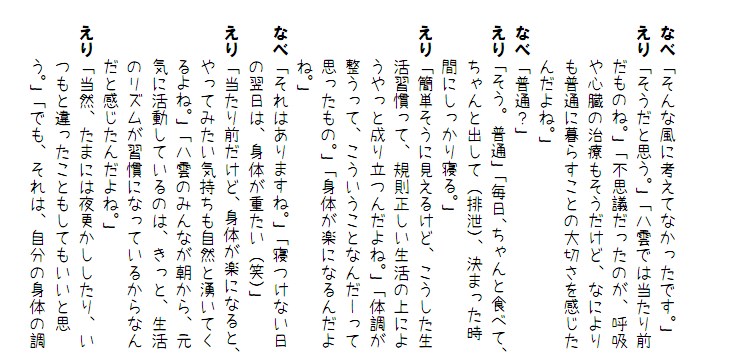 なべ「そんな風に考えてなかったです。」
えり「そうだと思う。」「八雲では当たり前
だものね。」「不思議だったのが、呼吸
や心臓の治療もそうだけど、なにより
も普通に暮らすことの大切さを感じた
んだよね。」
なべ「普通？」
えり「そう。普通」「毎日、ちゃんと食べて、
ちゃんと出して（排泄）、決まった時
間にしっかり寝る。」
えり「簡単そうに見えるけど、こうした生
活習慣って、規則正しい生活の上によ
うやっと成り立つんだよね。」「体調が
整うって、こういうことなんだーって
思ったもの。」「身体が楽になるんだよ
ね。」
なべ「それはありますね。」「寝つけない日
の翌日は、身体が重たい（笑）」
えり「当たり前だけど、身体が楽になると、
やってみたい気持ちも自然と湧いてく
るよね。」「八雲のみんなが朝から、元
気に活動しているのは、きっと、生活
のリズムが習慣になっているからなん
だと感じたんだよね。」
えり「当然、たまには夜更かししたり、い
つもと違ったこともしてもいいと思
う。」「でも、それは、自分の身体の調